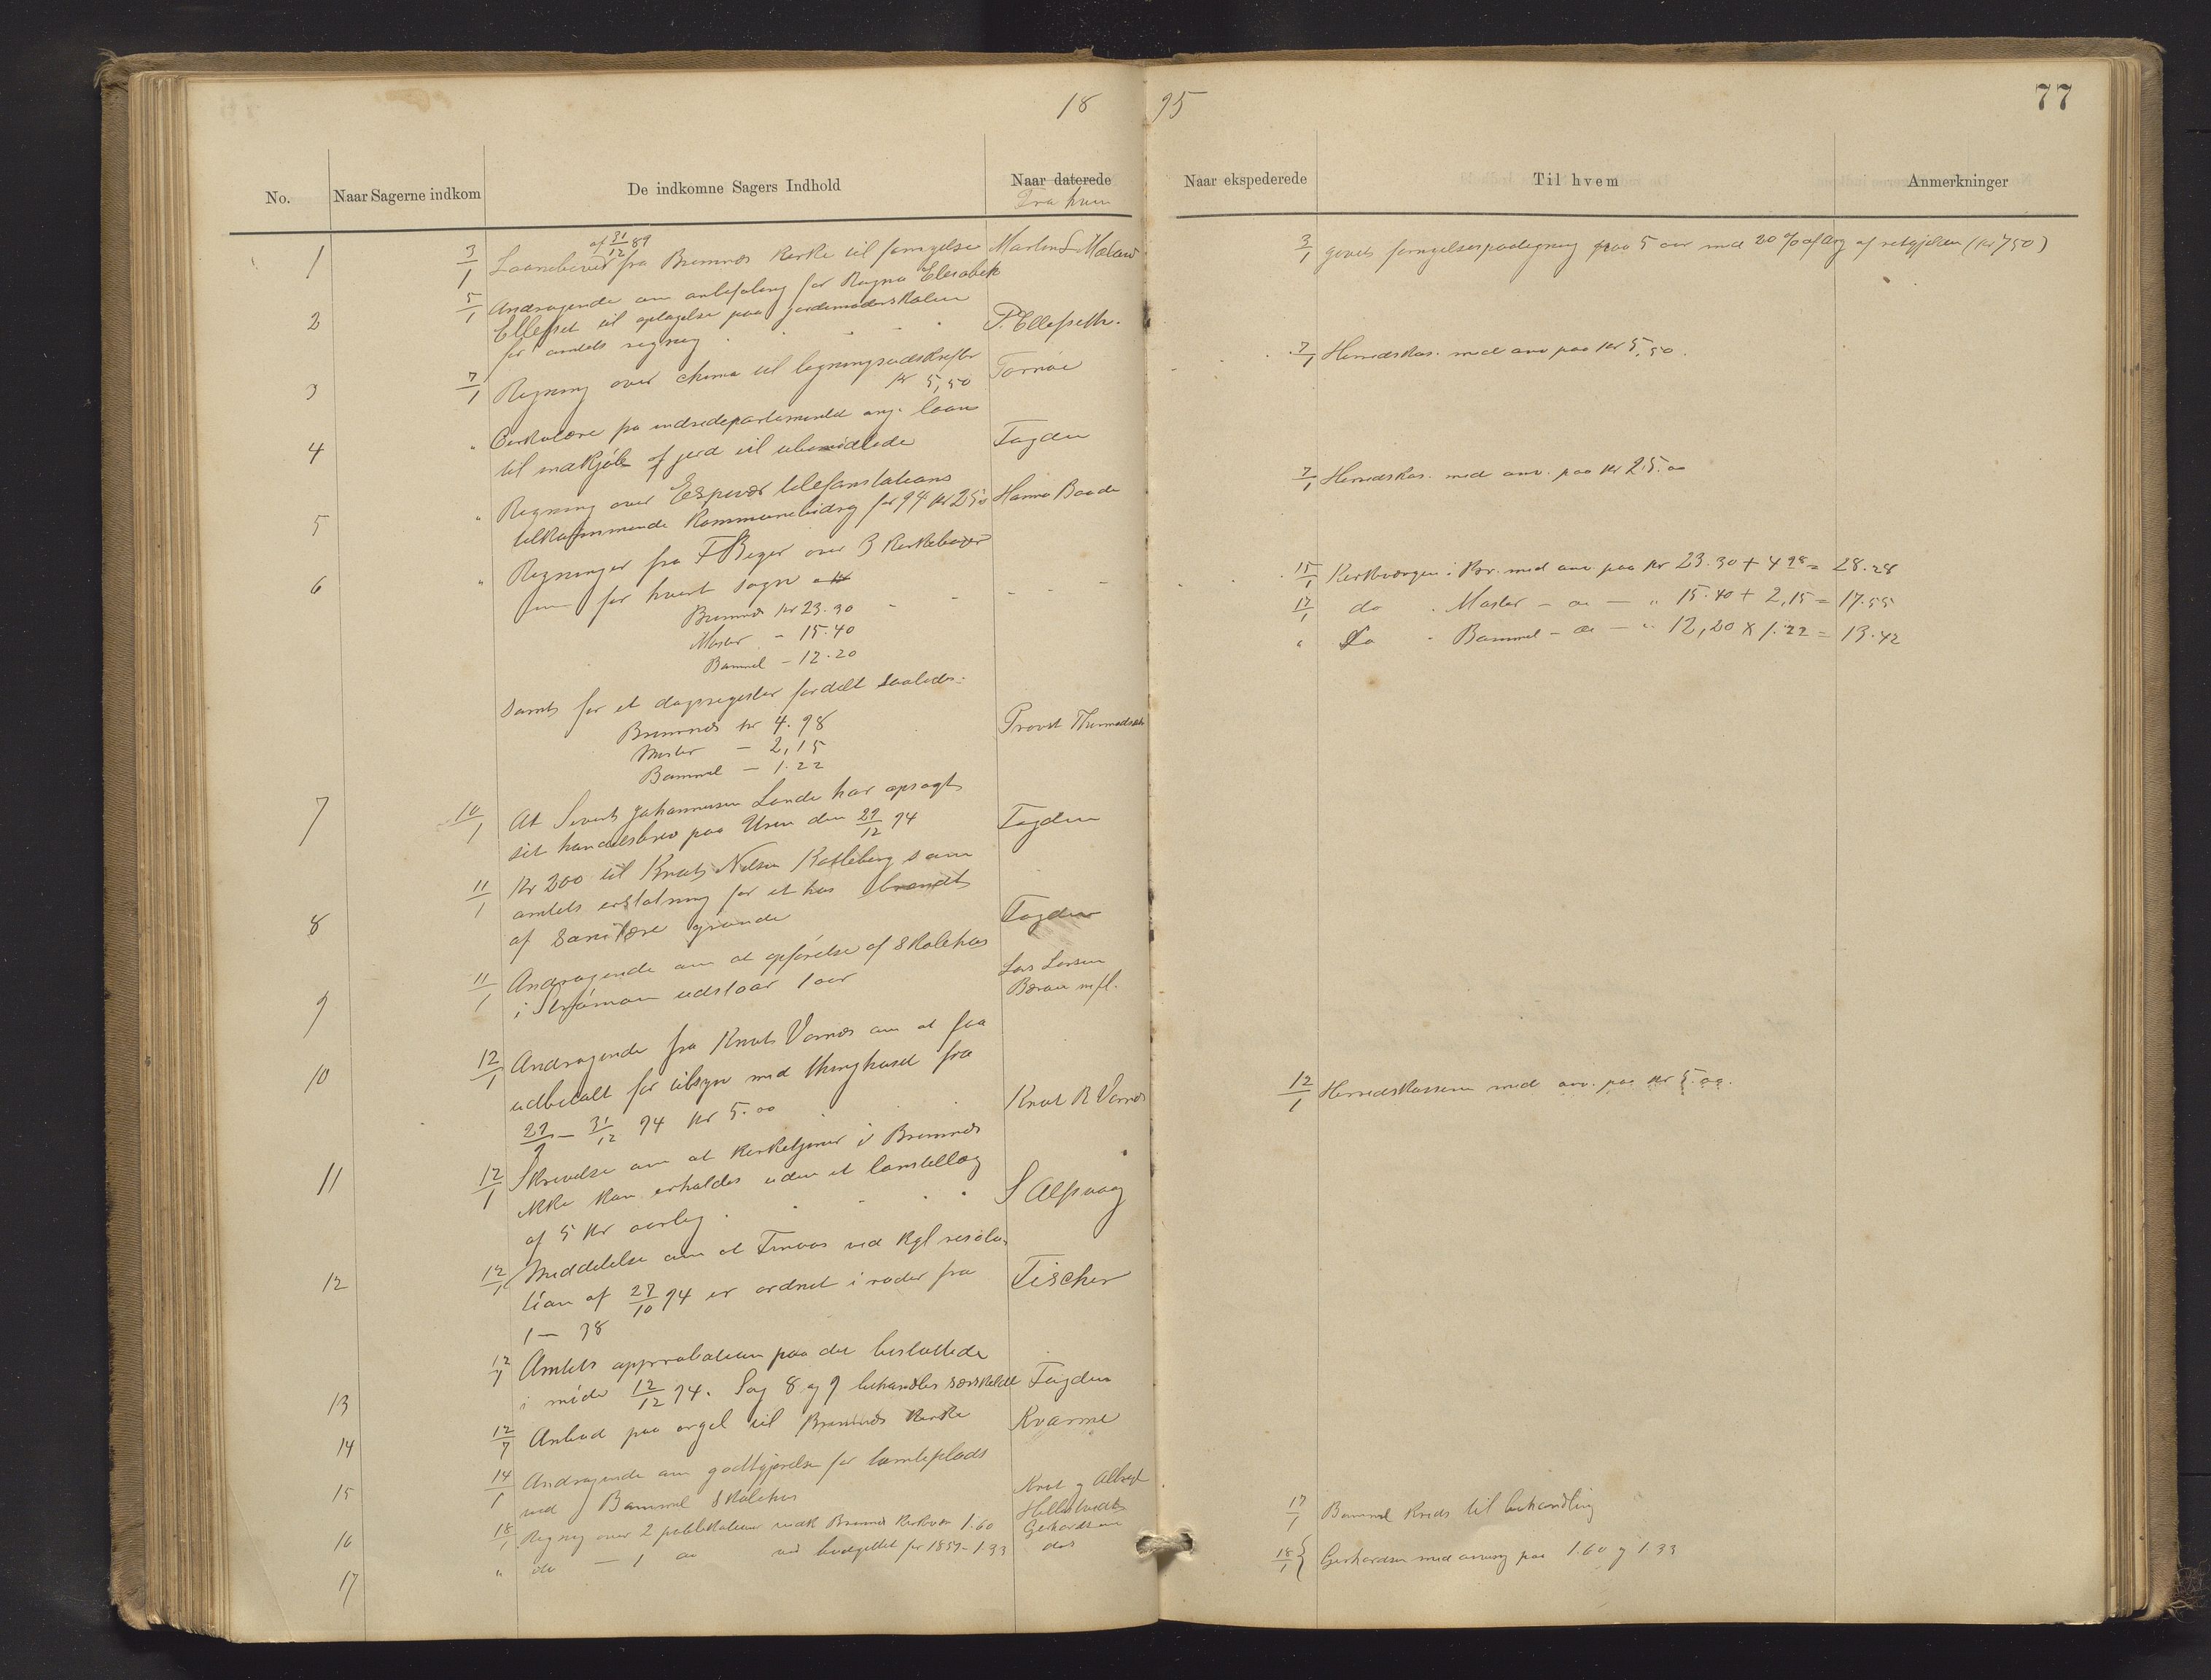 18 95
77
No.
Naar Sagerne indkom
De indkomne Sagers Indhold
Naar daterede
Fra hvem
Naar ekspederede
Til hvem
Anmerkninger
1 3/1 Laanebevis af 31/12 89 fra Bremnes Kirke til fornyelse
3/1 givet fornyelsespaategning paa 5 aar med 20 % afdrag af restgjælden (kr 750)
2 5/1 Andragende om anbefaling for Ragna Elesabek
til optagelse paa jordemoderskolen
for amtets regning P. Ellefseth.
3 7/1 Regning over skema til ligningsudskrifter
kr 5,50 Tornöe
7/1 Herredskas. med anv paa kr 5,50.
4 " Cirkulære fra indredepartementet ang. laan
til indkjöb af jord til ubemidlede Fogden
5 " Regning over Espevær telefonstations
tilkommende kommunebidrag for 94 kr 25.00 Hanna Baade
7/1 Herredskas. med anv. paa kr 25.00
6 " Regninger fra F Beyer over 3 kirkebøger
for hvert sogn
Bremnes kr 23.30
Moster - 15.40
Bømmel - 12.20
samt for et dagsregister fordelt saaledes:
Bremnes kr 4.98
Moster - 2,15
Bømmel - 1.22
Provst
15/1 Kirkeværgen i Br. med anv. paa kr 23.30 + 4.98 = 28.28
17/1 do . Moster - do - " 15.40 + 2,15 = 17.55
" Do " Bømmel - do - " 12,20 x 1.22 = 13.42
7 10/1 At Sivert Johannesen Lande har opsagt
sit handelsbrev paa Uren den 29/12 94 Fogden
8 11/1 Kr 200 til Knut Nilsen som
amtets erstatning for et hus brændt
af sanitære grunde Fogden
9 11/1 Andragende om at opförelse af skolehus
i udstaar 1 aar Lars Larsen
m fl.
10 12/1 Andragende fra Knut Vornes om at faa
udbetalt for tilsyn med thinghuset fra
29/9 - 31/12 94 kr 5.00 Knut R Vornes
12/1 Herredskassen med anv. paa kr 5.00.
11 12/1 Skrivelse om at kirketjener i Bremnes
ikke kan erholdes uden et löntillæg
af 5 kr aarlig. S Alfsvaag
12 12/1 Meddelelse om at Finaas ved kgl resolu-
tion af 27/10 94 er ordnet i roder fra
1 - 38 Fischer
13 12/1 Amtets approbation paa det besluttede
i möde 12/12 94. Sag 8 og 9 behandles særskildt Fogden
14 12/7 Anbud paa orgel til Bremnes Kirke Kvarme
15 14/1 Andragende om godtgjörelse for tomteplads
ved Bømmel skolehus Knut og
17/1 Bømmel kreds til behandling
16 18/1 Regning over 2 publikationer Bremnes 1.60 Gerhardsen
17 " do - 1 do ved budgettet for 1.33 do
18/1 } Gerhardsen med anvisng paa 1.60 og 1.33